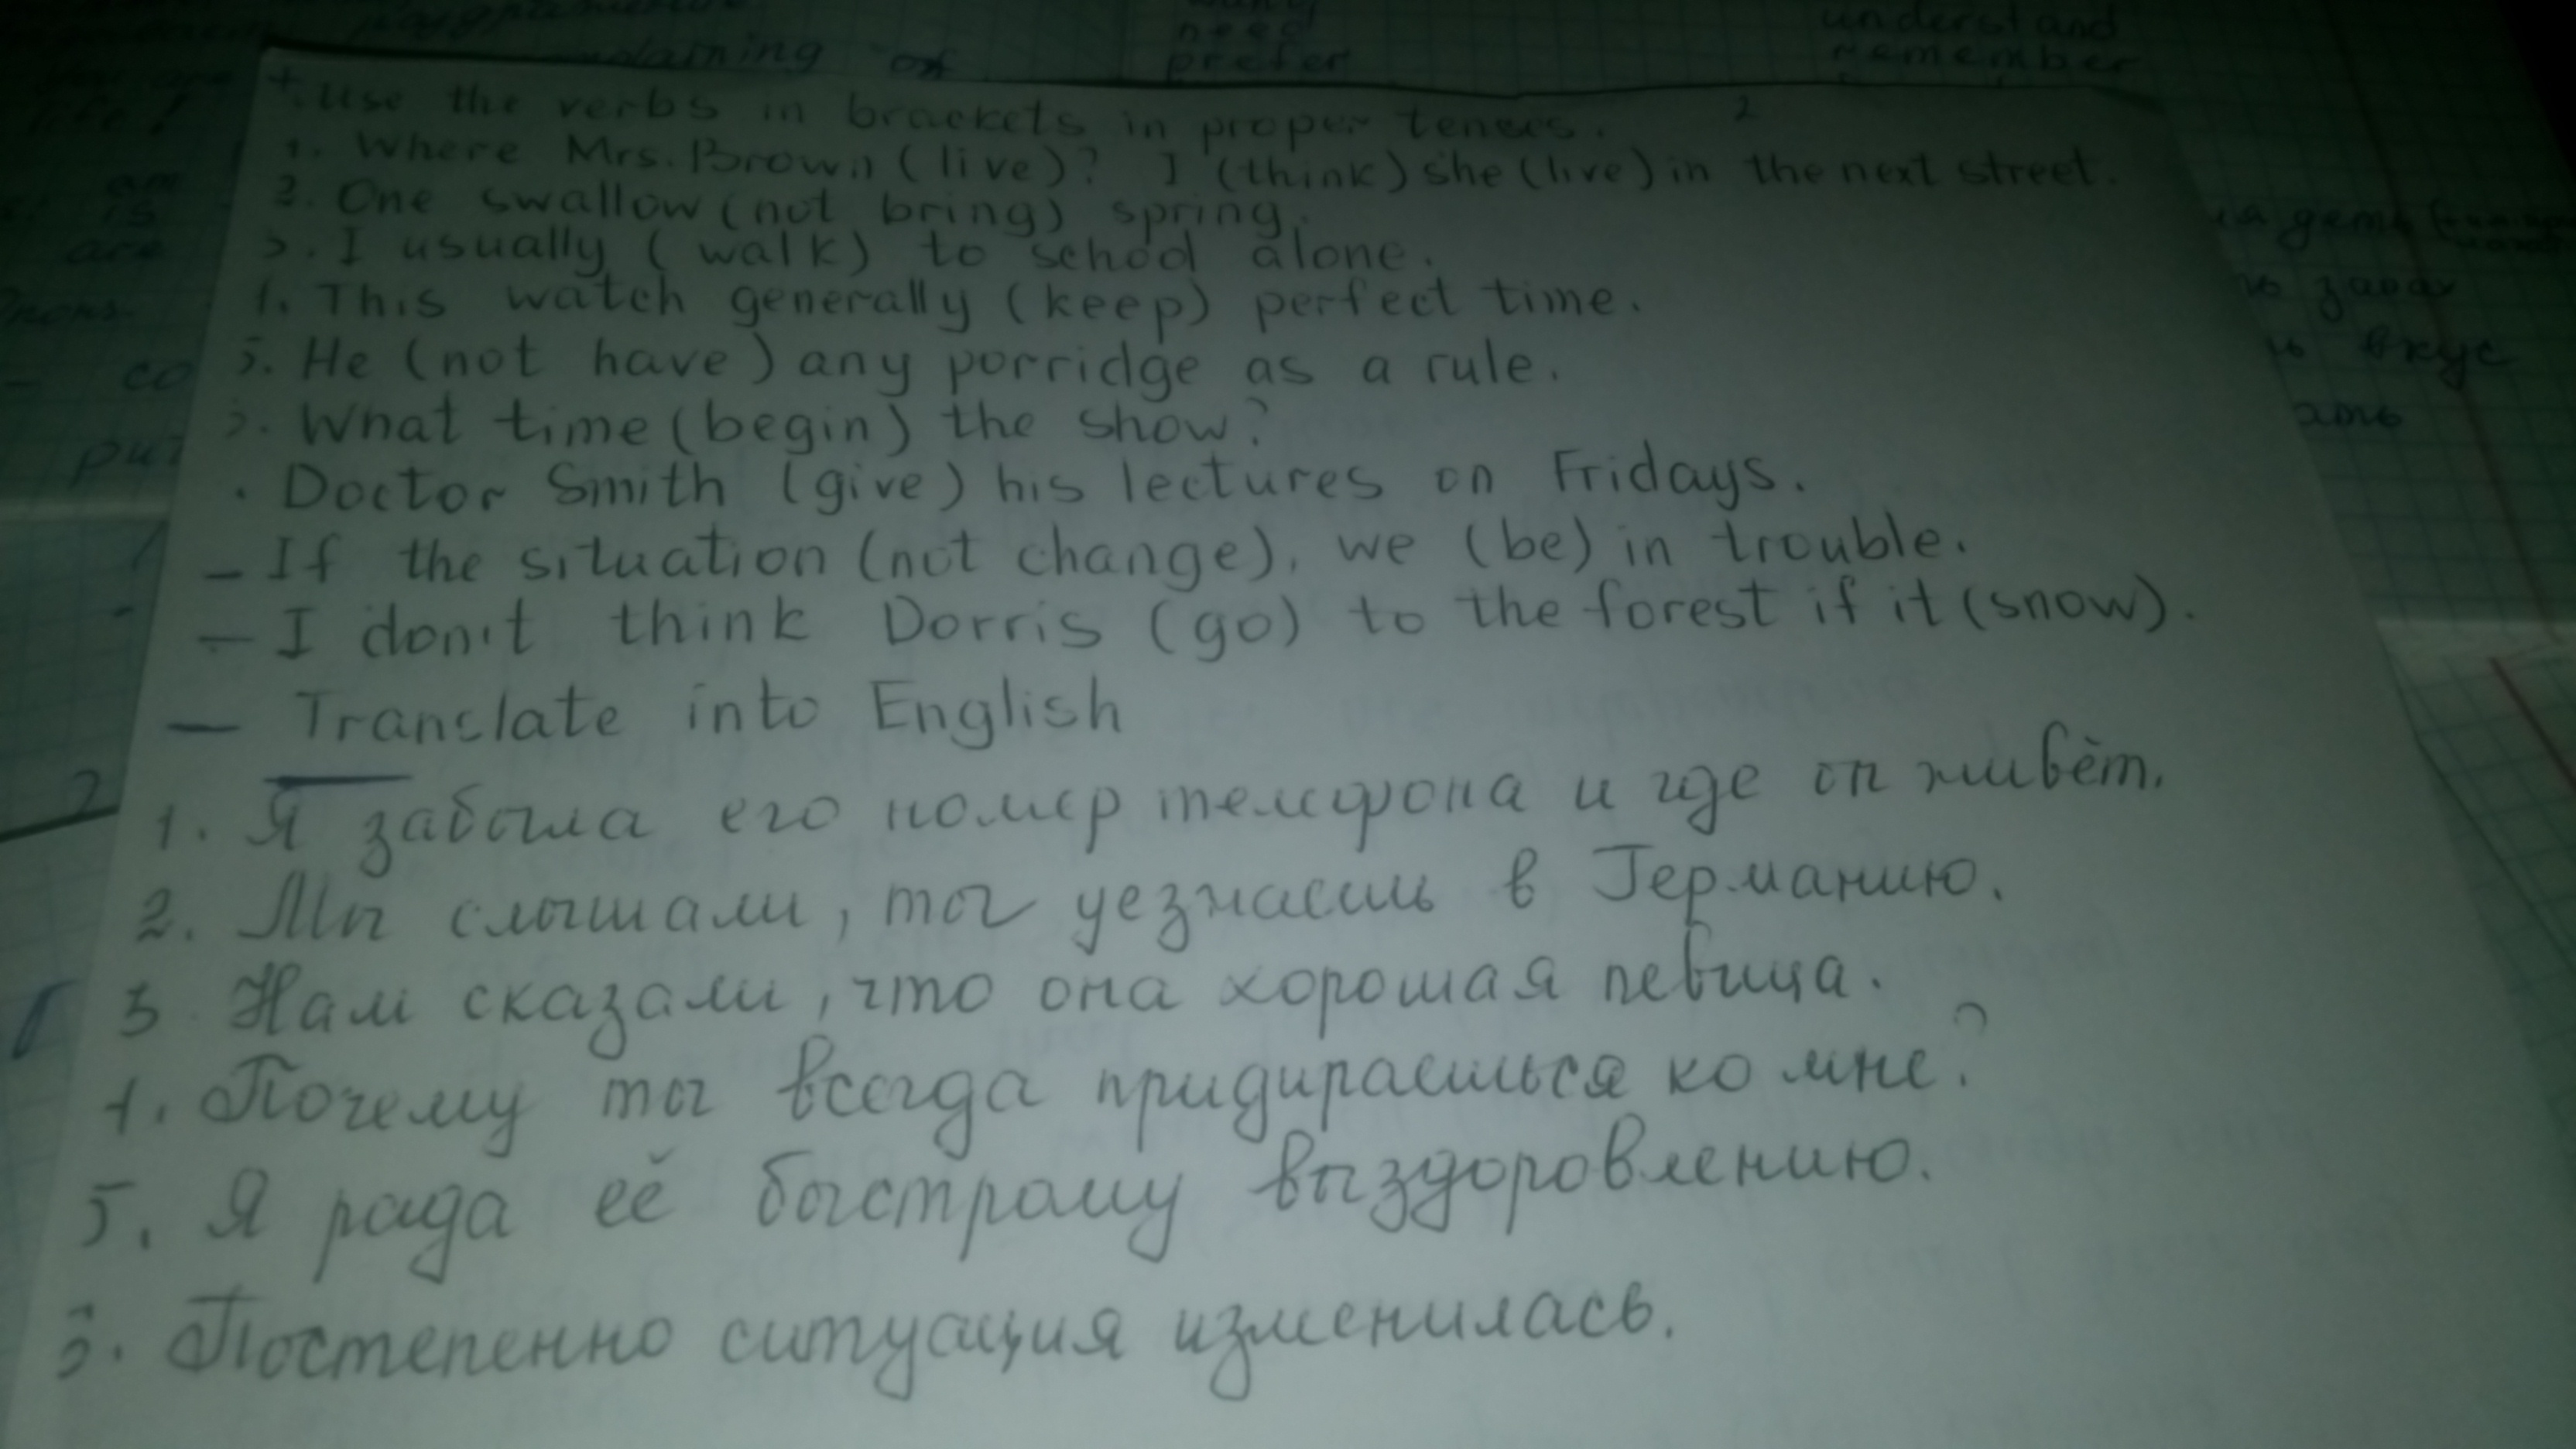 plaining of
need
prefer
understand
remember
life!
am
is
are
co
put
+. Use the verbs in brackets in proper tenses. 2
1. Where Mrs. Brown (live)? I (think) she (live) in the next street.
2. One swallow (not bring) spring.
3. I usually (walk) to school alone.
4. This watch generally (keep) perfect time.
5. He (not have) any porridge as a rule.
6. What time (begin) the show?
. Doctor Smith (give) his lectures on Fridays.
– If the situation (not change), we (be) in trouble.
– I don't think Dorris (go) to the forest if it (snow).
– Translate into English
1. Я забыла его номер телефона и где он живёт.
2. Мы слышали, ты уезжаешь в Германию.
3 Нам сказали, что она хорошая певица.
4. Почему ты всегда придираешься ко мне?
5. Я рада её быстрому выздоровлению.
6. Постепенно ситуация изменилась.
вкус
ать
2